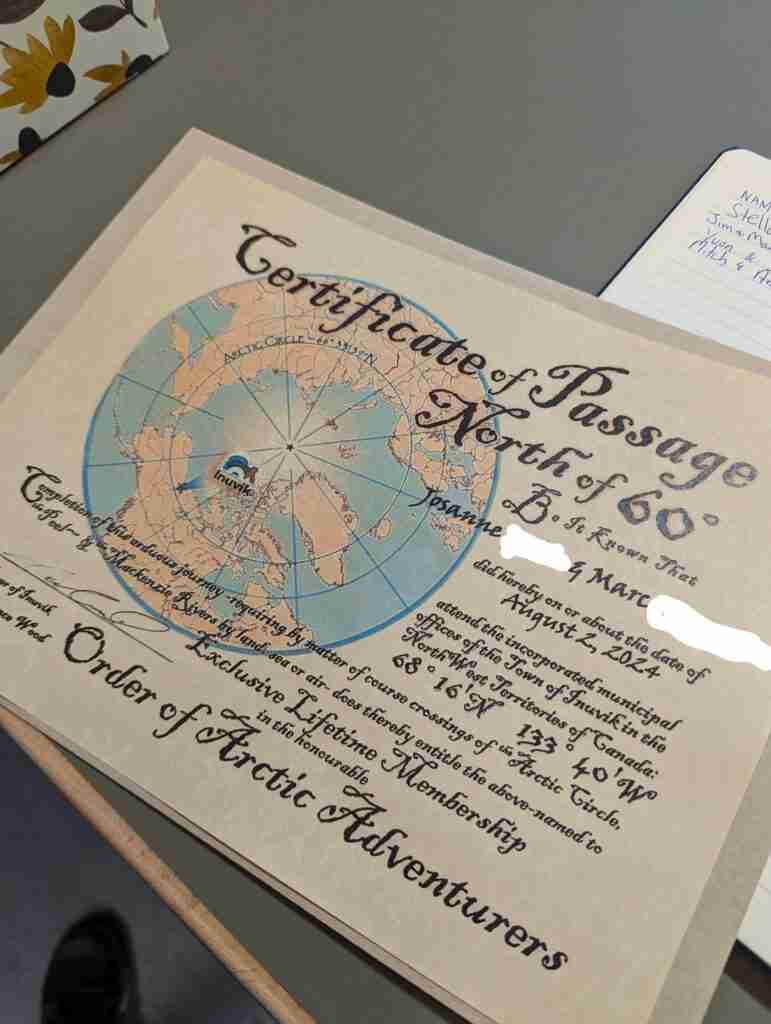 Certificate of Passage
North of 60°
ARCTIC CIRCLE ~ 66° 33'39"N
Inuvik
Be It Known That
Josanne & Marc
did hereby on or about the date of
August 2, 2024
attend the incorporated municipal
offices of the Town of Inuvik in the
North West Territories of Canada:
68° 16'N 133° 40'W
Completion of this arduous journey -requiring by matter of course crossings of the Arctic Circle,
the Peel & the Mackenzie Rivers by land, sea or air- does thereby entitle the above-named to
Exclusive Lifetime Membership
in the honourable
Order of Arctic Adventurers
of Inuvik
Wood
NAM
Stell
Jim & Ma
&
Mitch &